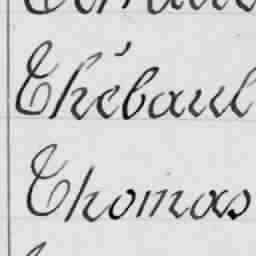 Thébaul
Thomas